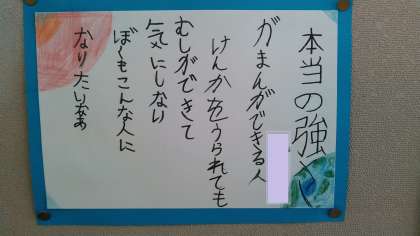 本当の強さ
がまんができる人
けんかをうられても
むしができて
気にしない
ぼくもこんな人に
なりたいなあ